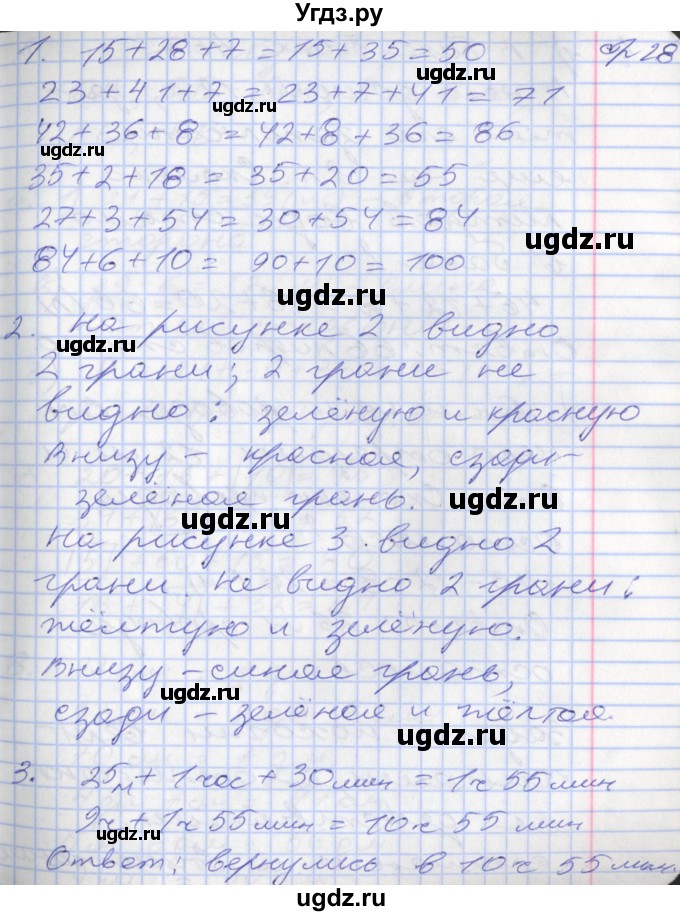 Угдз.ру
1. 15+28+7=15+35=50 стр 28
23+41+7=23+7+41=71
42+36+8=42+8+36=86
35+2+18=35+20=55
27+3+54=30+54=84
84+6+10=90+10=100
2. На рисунке 2 видно
2 грани; 2 грани не
видно: зелёную и красную
Внизу – красная, сзади-
зелёная грань.
На рисунке 3 видно 2
грани. Не видно 2 грани:
жёлтую и зелёную.
Внизу – синяя грань,
сзади – зелёная и жёлтая.
3. 25м + 1 час + 30 мин = 1ч 55 мин
9ч + 1ч 55 мин = 10ч 55 мин
Ответ: вернулись в 10ч 55 мин.
ugdz.ru
ugdz.ru
ugdz.ru
ugdz.ru
ugdz.ru
ugdz.ru
ugdz.ru
ugdz.ru
ugdz.ru
ugdz.ru
ugdz.ru
ugdz.ru